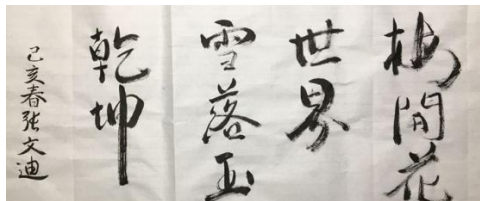 梅開花
世界
雪落玉
乾坤
己亥春张文迪